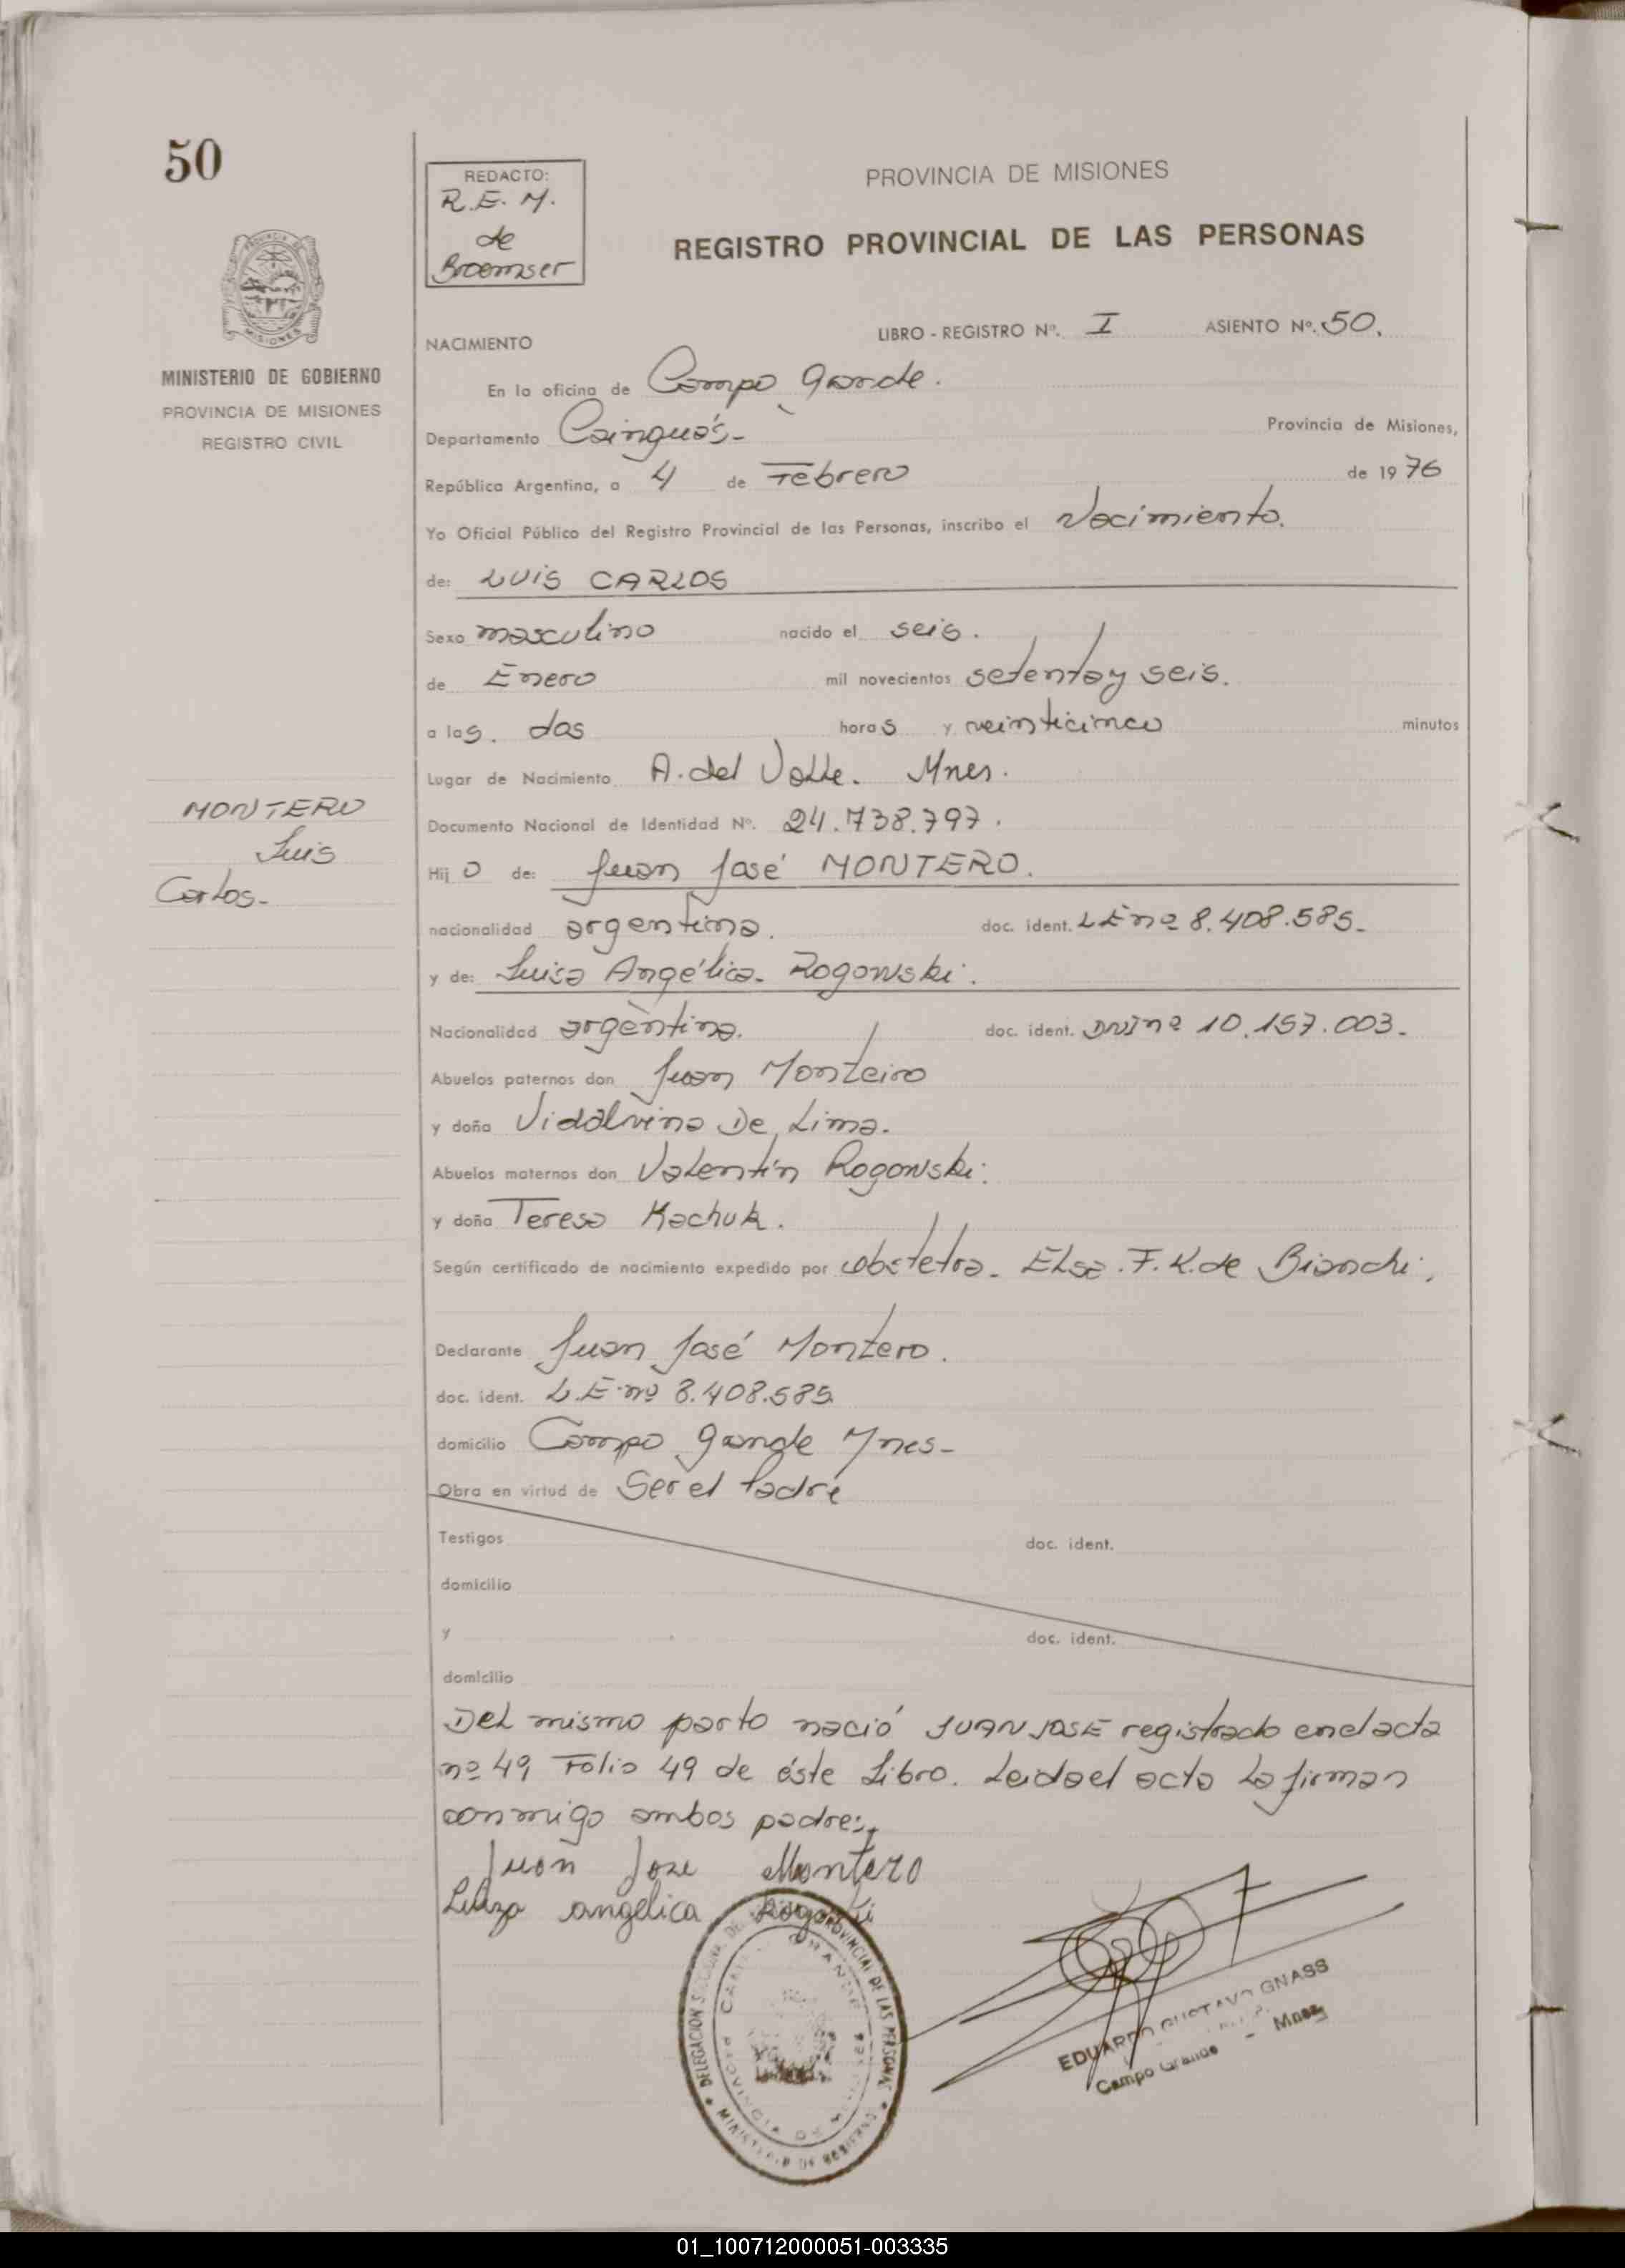 50
REDACTO:
R.E.M.
de
Broemser
PROVINCIA DE MISIONES
REGISTRO PROVINCIAL DE LAS PERSONAS
MINISTERIO DE GOBIERNO
PROVINCIA DE MISIONES
REGISTRO CIVIL
LIBRO - REGISTRO Nº. I ASIENTO Nº. 50.
NACIMIENTO
En la oficina de Campo Grande.
Departamento Cainguás- Provincia de Misiones,
República Argentina, a 4 de Febrero de 1976
Yo Oficial Público del Registro Provincial de las Personas, inscribo el Nacimiento.
de: LUIS CARLOS
Sexo masculino nacido el seis.
de Enero mil novecientos setenta y seis.
a las. dos horas y veinticinco minutos
Lugar de Nacimiento A. del Valle. Mnes.
MONTERO
Luis
Carlos-
Documento Nacional de Identidad Nº. 24.738.797.
Hijo de: Juan José MONTERO.
nacionalidad argentina. doc. ident. LE nº 8.408.585-
y de: Luisa Angélica- Rogowski.
Nacionalidad argentina. doc. ident. DNI nº 10.157.003-
Abuelos paternos don Juan Monteiro
y doña Vidalvina De Lima.
Abuelos maternos don Valentín Rogowski.
y doña Teresa Kachuk.
Según certificado de nacimiento expedido por obstetra- Elsa. F. K. de Bianchi.
Declarante Juan José Montero.
doc. ident. L.E. nº 8.408.585.
domicilio Campo Grande Mnes-
Obra en virtud de Ser el Padre
Testigos doc. ident.
domicilio
y doc. ident.
domicilio
Del mismo parto nació JUAN JOSE registrado en el acta
nº 49 Folio 49 de éste Libro. Leida el acta la firman
conmigo ambos padres,
Juan Jose Montero
Luiza angelica
PROVINCIAL DE LAS PERSONAS
DELEGACION
MINISTERIO DE GOBIERNO
PROVINCIA DE
EDUARDO GUSTAVO GNASS
Campo Grande - Mnes
01_100712000051-003335